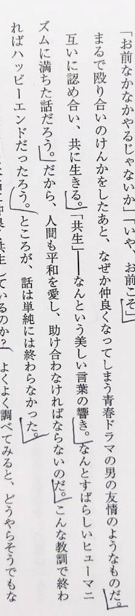 「お前なかなかやるじゃないか」「いや、お前こそ」
まるで殴り合いのけんかをしたあと、なぜか仲良くなってしまう青春ドラマの男の友情のようなものだ。
互いに認め合い、共に生きる。「共生」――なんという美しい言葉の響き。なんとすばらしいヒューマニ
ズムに満ちた話だろう。だから、人間も平和を愛し、助け合わなければならないのだ。こんな教訓で終わ
ればハッピーエンドだったろう。ところが、話は単純には終わらなかった。
共生しているのか？よくよく調べてみると、どうやらそうでもな